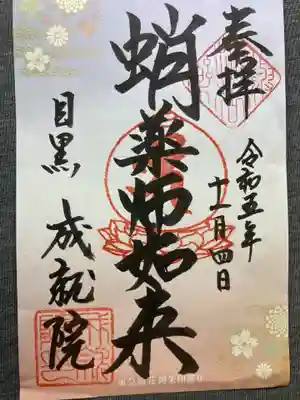 奉拝
令和五年
十一月四日
蛸薬師如来
目黒 成就院